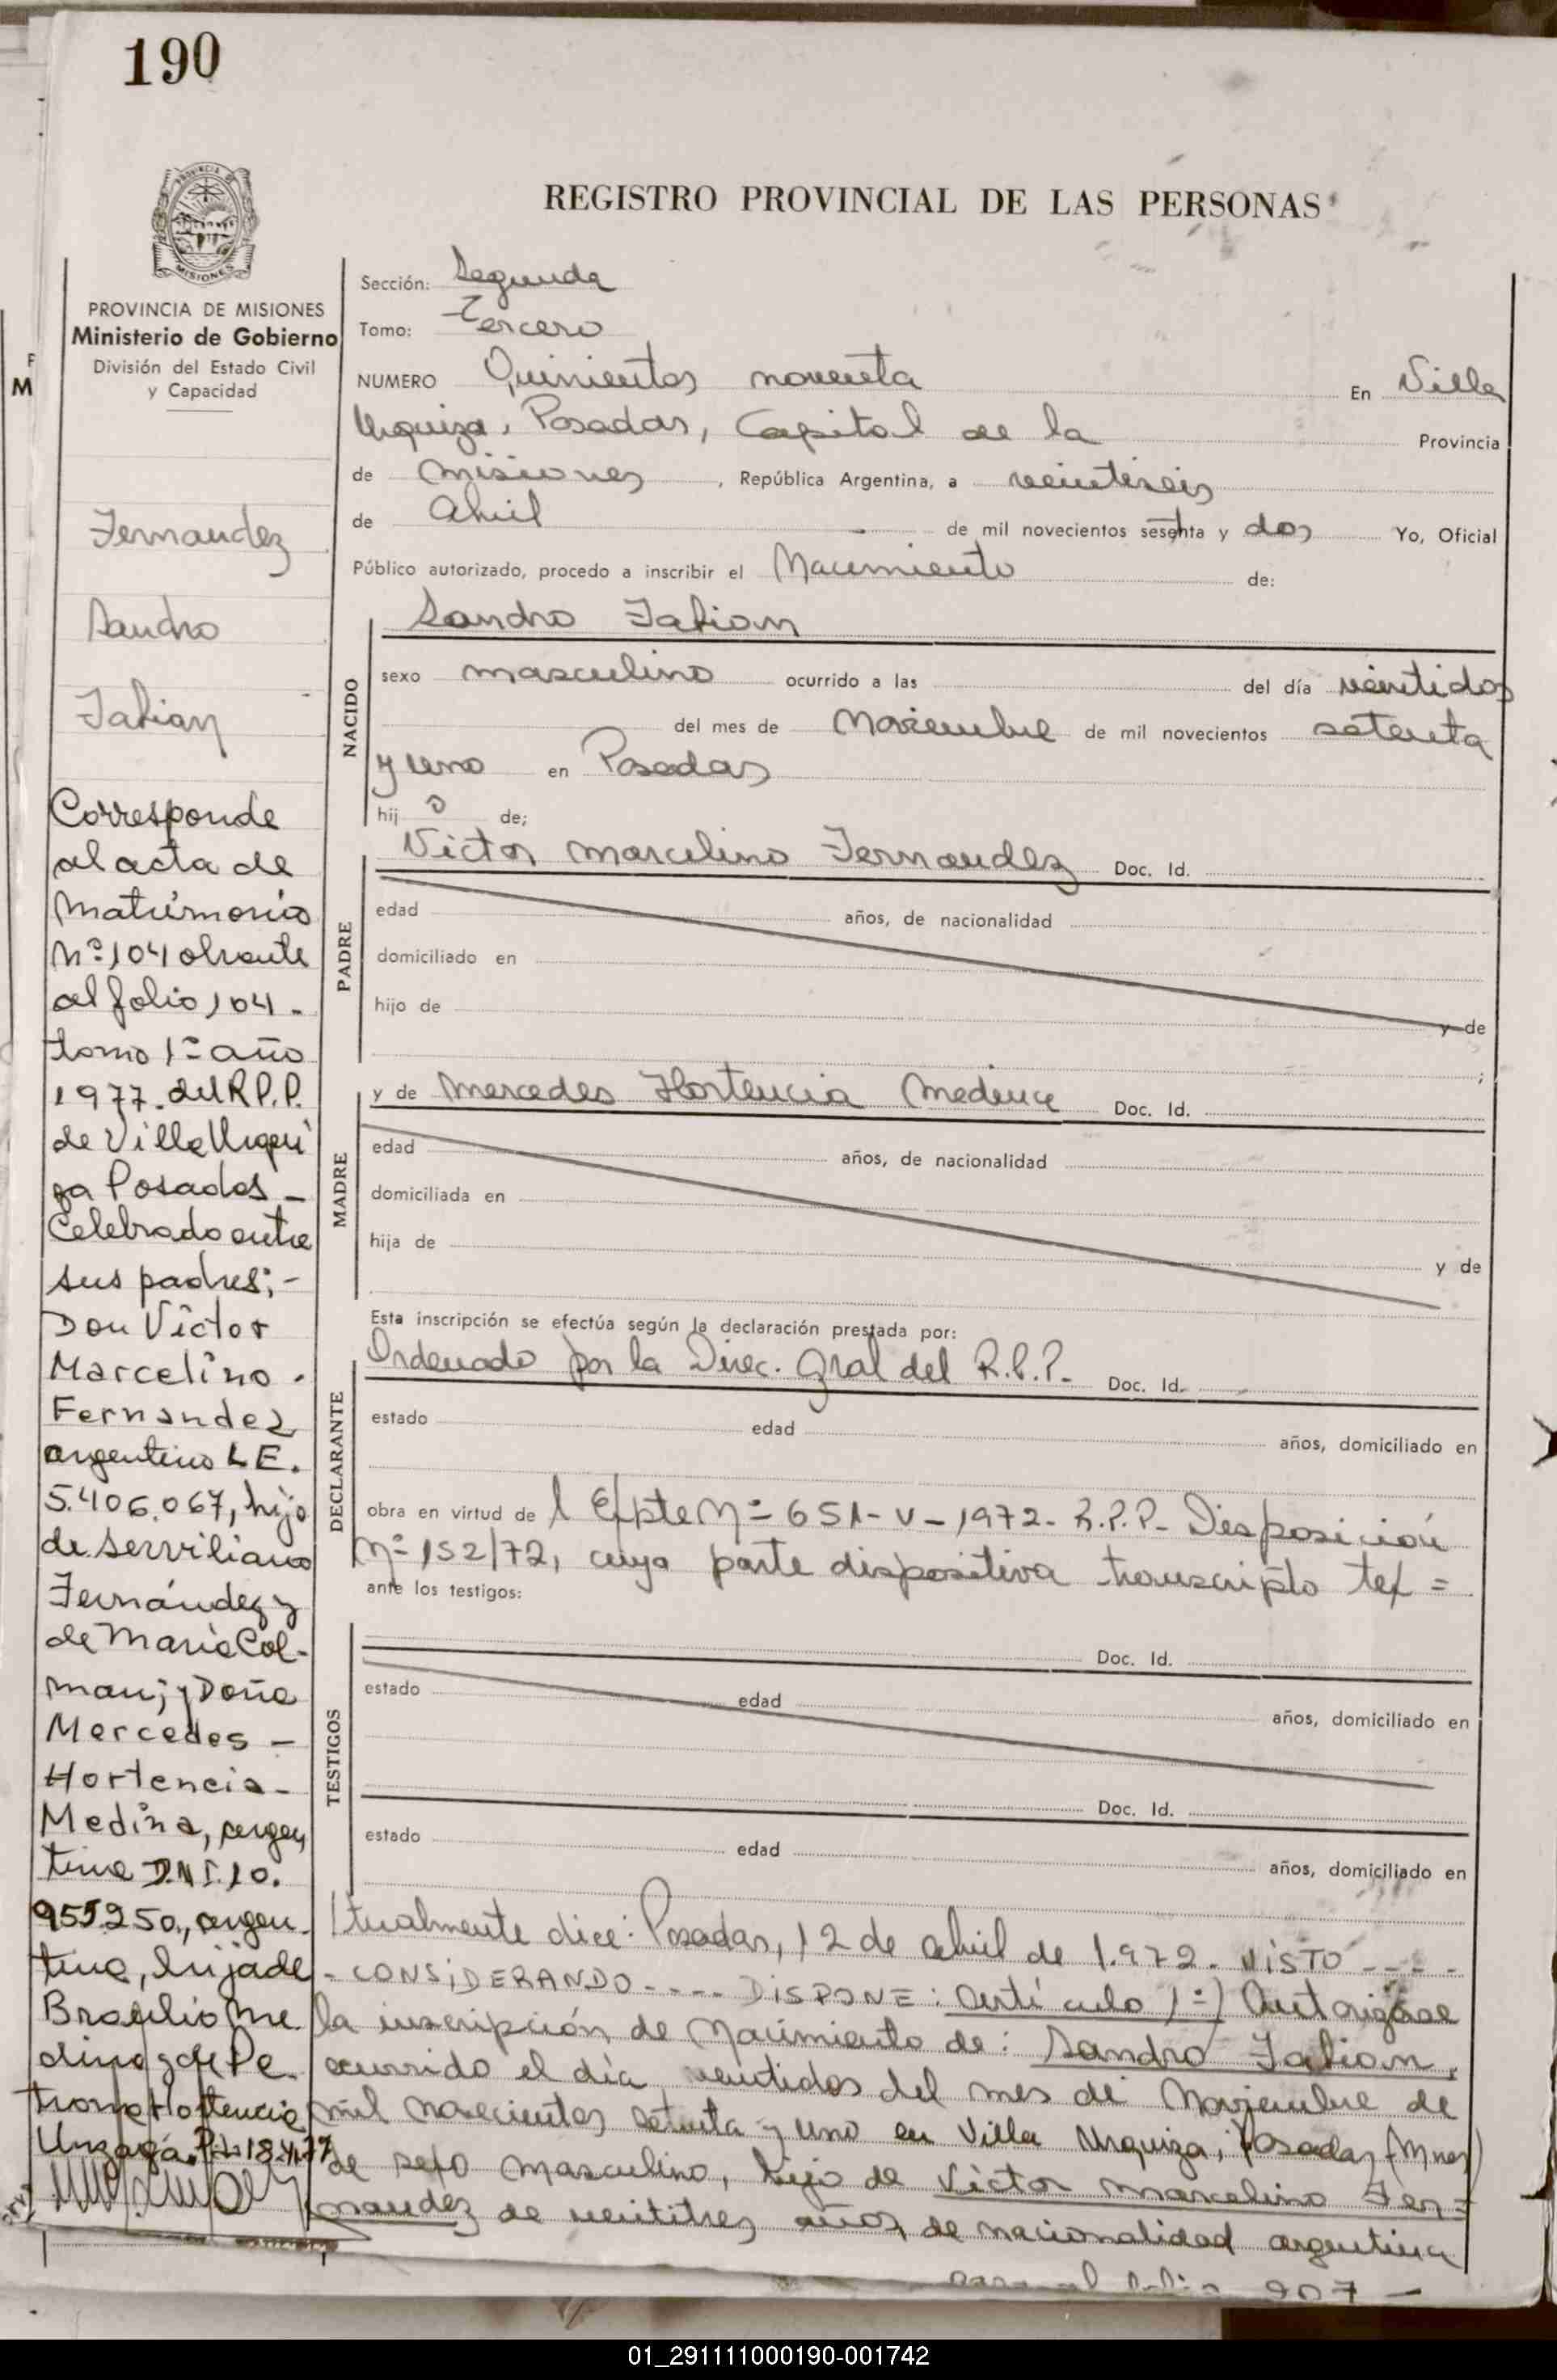 190
REGISTRO PROVINCIAL DE LAS PERSONAS
PROVINCIA DE MISIONES
Ministerio de Gobierno
División del Estado Civil
y Capacidad
Fernandez
Sandro
Fabian
Corresponde
al acta de
Matrimonio
Nº 104 obrante
al folio 104 -
tomo 1º año
1977. del R.P.P.
de Villa Urqui
za Posadas -
Celebrado entre
sus padres; -
Don Victor
Marcelino -
Fernandez
argentino L.E.
5.406.067, hijo
de Serviliano
Fernández y
de Maria Col-
man; y Doña
Mercedes -
Hortencia -
Medina, argen
tina D.N.I. 10.
955250, argen-
tina, hija de
Braulio Me
dina y de Pe
trona Hortencia
Unzaga.
Sección: Segunda
Tomo: Tercero
NUMERO Quinientos noventa En Villa
Urquiza, Posadas, Capital de la Provincia
de Misiones, República Argentina, a veintiseis
de Abril de mil novecientos sesenta y dos Yo, Oficial
Público autorizado, procedo a inscribir el Nacimiento de:
NACIDO
Sandro Fabian
sexo masculino ocurrido a las del día veintidos
del mes de Noviembre de mil novecientos setenta
y uno en Posadas
hij o de;
PADRE
Victor Marcelino Fernandez Doc. Id.
edad años, de nacionalidad
domiciliado en
hijo de y de
;
MADRE
y de Mercedes Hortencia Medina Doc. Id.
edad años, de nacionalidad
domiciliada en
hija de y de
Esta inscripción se efectúa según la declaración prestada por:
DECLARANTE
Ordenado por la Direc. Gral del R.P.P. Doc. Id.
estado edad años, domiciliado en
obra en virtud de l Expte Nº 651-V-1972- R.P.P. Disposición
Nº 152/72, cuya parte dispositiva transcripto tex =
ante los testigos:
TESTIGOS
Doc. Id.
estado edad años, domiciliado en
Doc. Id.
estado edad años, domiciliado en
tualmente dice: Posadas, 12 de abril de 1.972. VISTO - - - -
- CONSIDERANDO - - - - DISPONE: Artículo 1º) Autorizase
la inscripción de Nacimiento de: Sandro Fabian,
ocurrido el día veintidos del mes de Noviembre de
mil novecientos setenta y uno en Villa Urquiza, Posadas (Mnes)
de sexo masculino, hijo de Victor Marcelino Fer=
nandez de veintitres años, de nacionalidad argentina
907 -
01_291111000190-001742